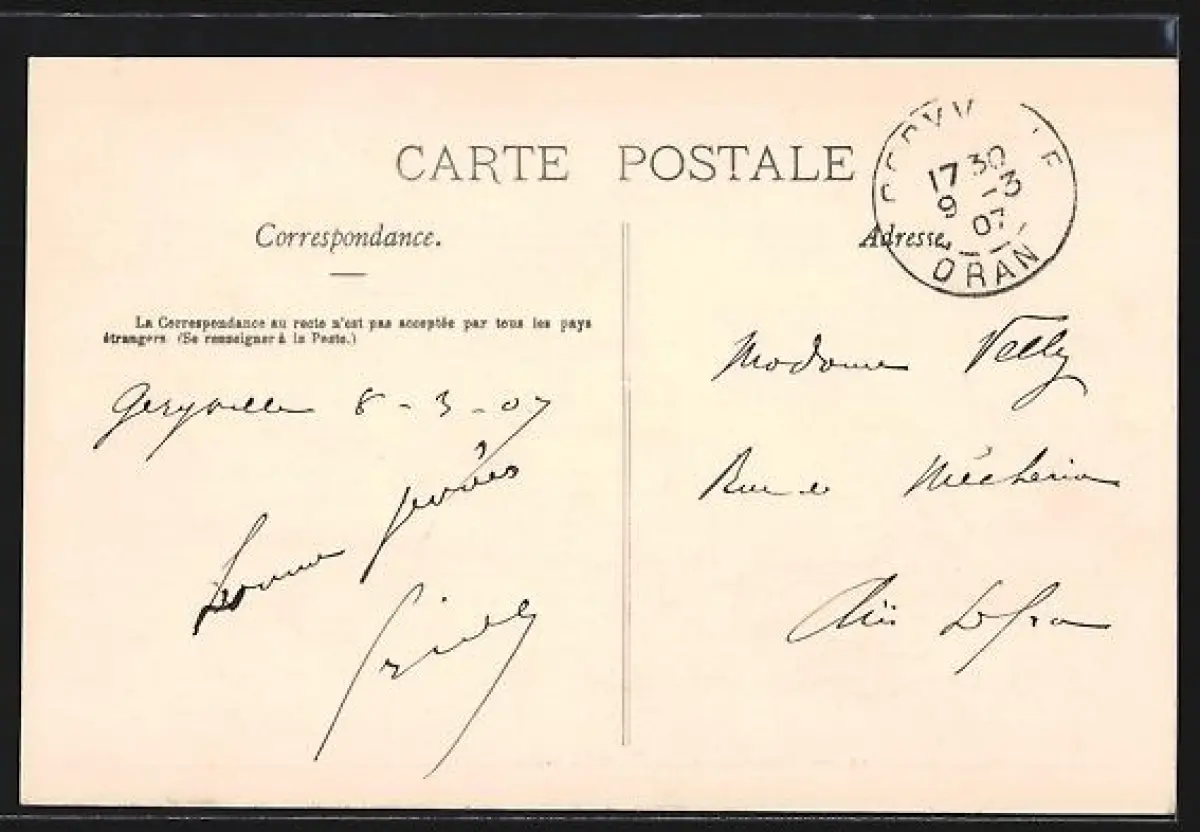 CARTE POSTALE
Correspondance.
Adresse
La Correspondance au recto n'est pas acceptée par tous les pays
étrangers (Se renseigner à la Poste.)
17 30
9 -3
07
ORAN
Geryville 8-3-07
Bonne
Madame Velly
Rue de Méchéria
Aïn Sefra